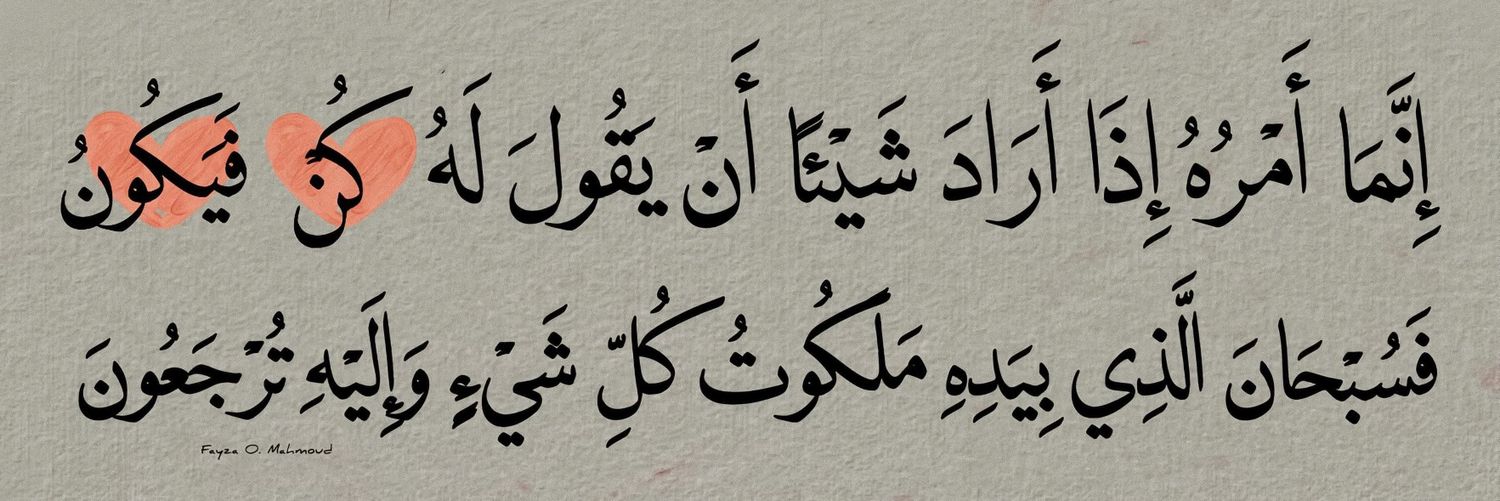 إِنَّمَا أَمْرُهُ إِذَا أَرَادَ شَيْئًا أَنْ يَقُولَ لَهُ كُنْ فَيَكُونُ
فَسُبْحَانَ الَّذِي بِيَدِهِ مَلَكُوتُ كُلِّ شَيْءٍ وَإِلَيْهِ تُرْجَعُونَ
Fayza O. Mahmoud